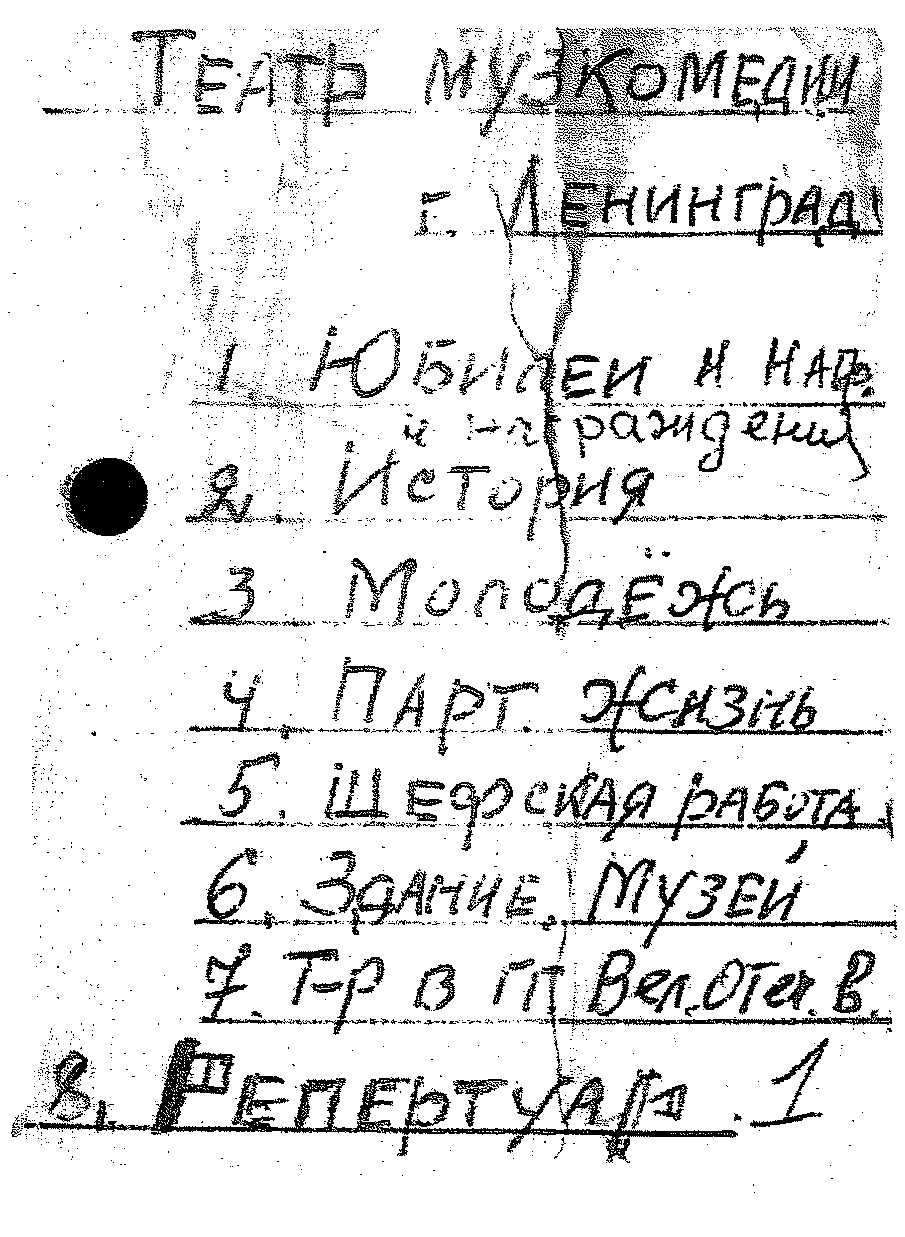 ТЕАТР МУЗКОМЕДИИ
г. ЛЕНИНГРАД
1 ЮБИЛЕИ И НАГР.
и награждения
2. История
3 МолодЁжь
4. ПАРТ. ЖИЗНЬ
5. ШЕФСКАЯ РАБОТА.
6. ЗДАНИЕ. МУЗЕЙ
7. Т-Р В ГГ. Вел. Отеч. В.
8. РЕПЕРТУАР. 1